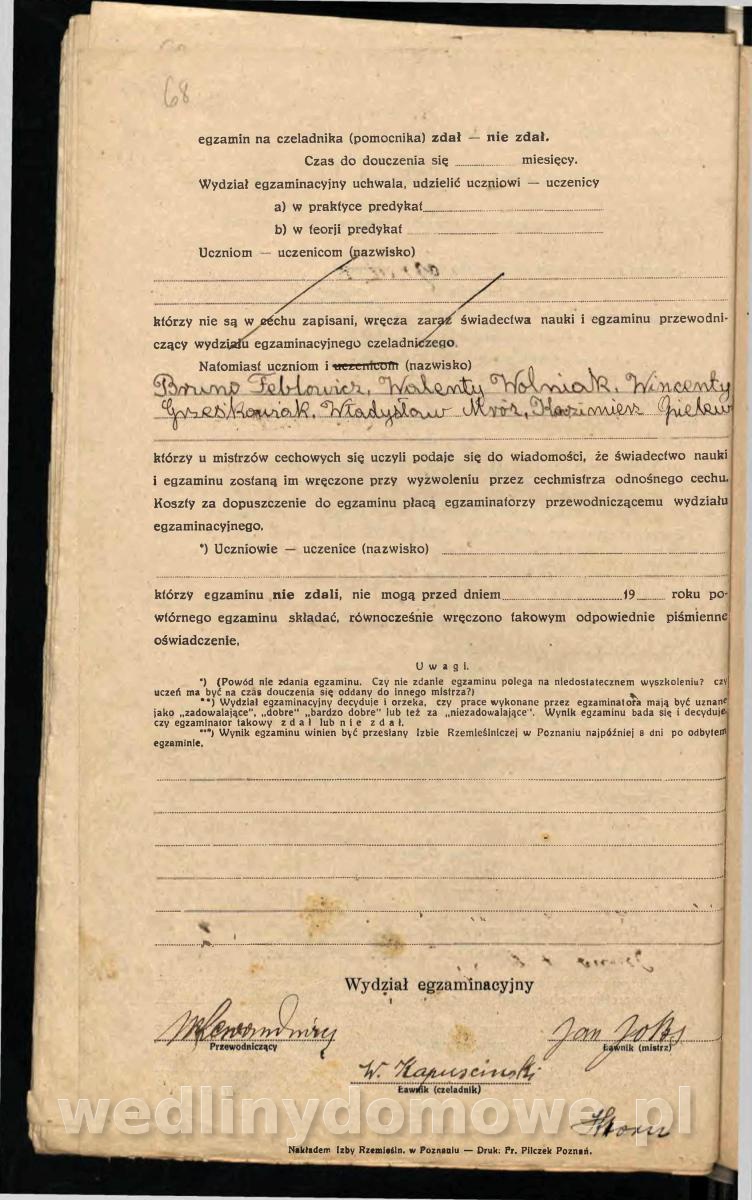 68
egzamin na czeladnika (pomocnika) zdał — nie zdał.
Czas do douczenia się miesięcy.
Wydział egzaminacyjny uchwala, udzielić uczniowi — uczenicy
a) w praktyce predykat
b) w teorji predykat
Uczniom — uczenicom (nazwisko)
którzy nie są w cechu zapisani, wręcza zaraz świadectwa nauki i egzaminu przewodni-
czący wydziału egzaminacyjnego czeladniczego.
Natomiast uczniom i uczenicom (nazwisko)
Bruno Feblowicz, Walenty Wolniak, Wincenty
Grześkowiak, Władysław Mróz, Kazimierz
którzy u mistrzów cechowych się uczyli podaje się do wiadomości, że świadectwo nauki
i egzaminu zostaną im wręczone przy wyzwoleniu przez cechmistrza odnośnego cechu.
Koszty za dopuszczenie do egzaminu płacą egzaminatorzy przewodniczącemu wydziału
egzaminacyjnego.
*) Uczniowie — uczenice (nazwisko)
którzy egzaminu nie zdali, nie mogą przed dniem 19 roku po-
wtórnego egzaminu składać, równocześnie wręczono takowym odpowiednie piśmienne
oświadczenie.
Uwagi.
*) (Powód nie zdania egzaminu. Czy nie zdanie egzaminu polega na niedostatecznem wyszkoleniu? czy
uczeń ma być na czas douczenia się oddany do innego mistrza?)
**) Wydział egzaminacyjny decyduje i orzeka, czy prace wykonane przez egzaminatora mają być uznane
jako „zadowalające", „dobre" „bardzo dobre" lub też za „niezadowalające". Wynik egzaminu bada się i decyduje,
czy egzaminator takowy zdał lub nie zdał.
***) Wynik egzaminu winien być przesłany Izbie Rzemieślniczej w Poznaniu najpóźniej 8 dni po odbytem
egzaminie.
Wydział egzaminacyjny
Jan
Przewodniczący Ławnik (mistrz)
W. Kapuscinski
Ławnik (czeladnik)
wedlinydomowe.pl
Nakładem Izby Rzemieśln. w Poznaniu — Druk: Fr. Pilczek Poznań.